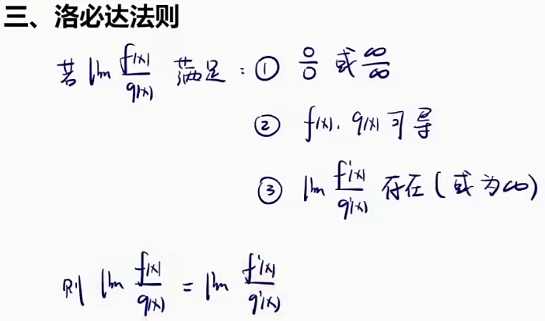 三、洛必达法则
若 lim f(x)/g(x) 满足：① 0/0 或 ∞/∞
② f(x)，g(x) 可导
③ lim f'(x)/g'(x) 存在（或为∞）
则 lim f(x)/g(x) = lim f'(x)/g'(x)